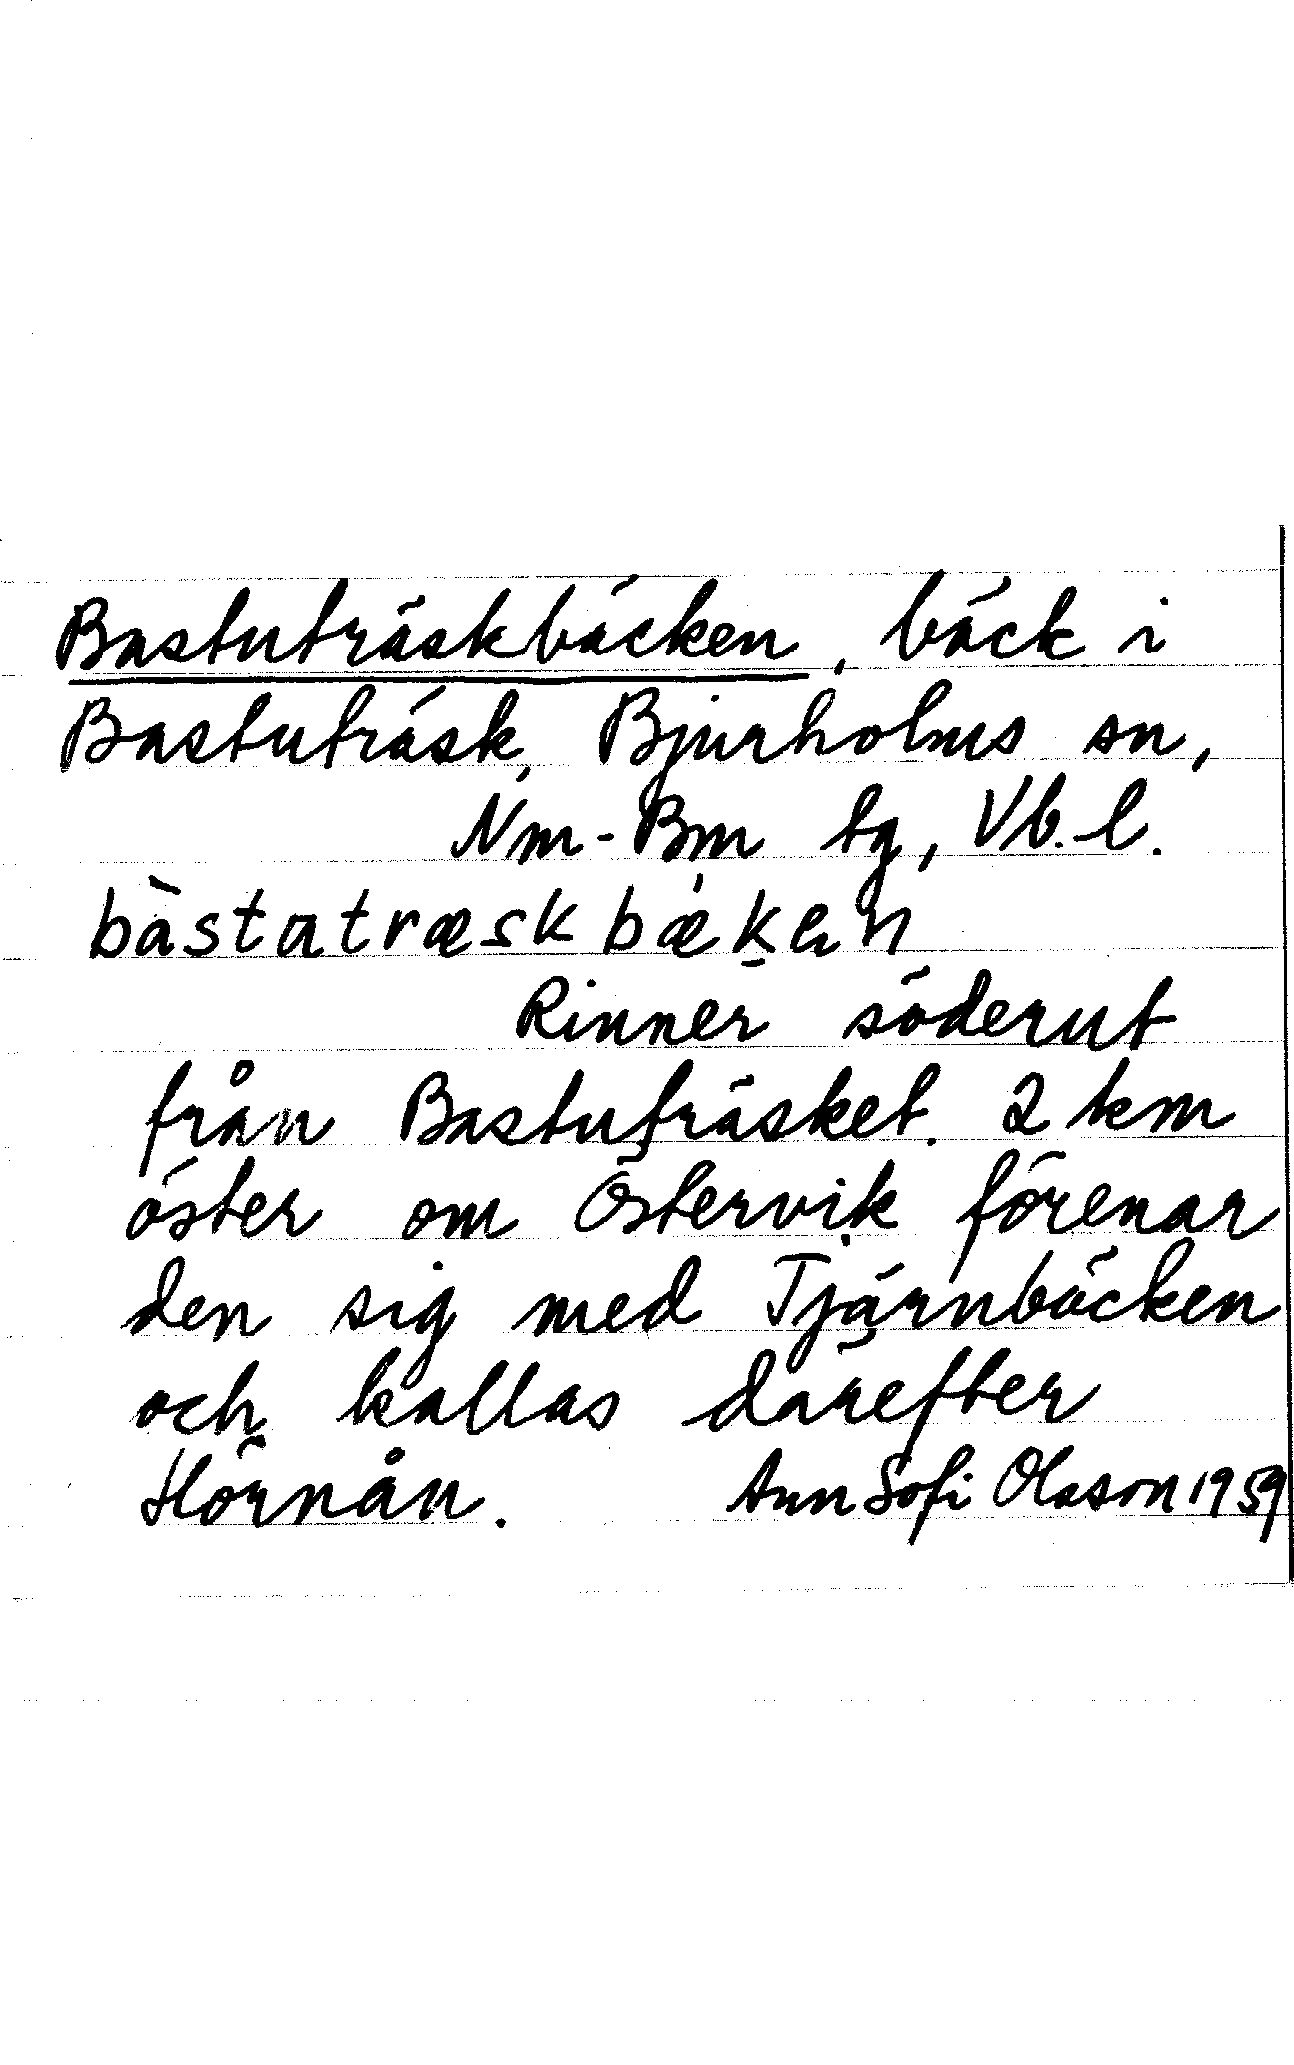 Bastuträskbäcken, bäck i
Bastuträsk, Bjurholms sn,
Nm-Bm tg, Vb. l.
bàstatræskbækən
Rinner söderut
från Bastuträsket. 2 km
öster om Östervik förenar
den sig med Tjärnbäcken
och kallas därefter
Hörnån. Ann Sofi Olsson 1959